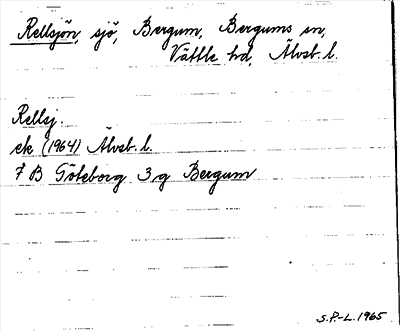 Rellsjön, sjö, Bergum, Bergums sn,
Vättle hd, Älvsb. l.
Rellsj.
ek (1964) Älvsb. l.
7 B Göteborg 3 g Bergum
S.P.-L. 1965